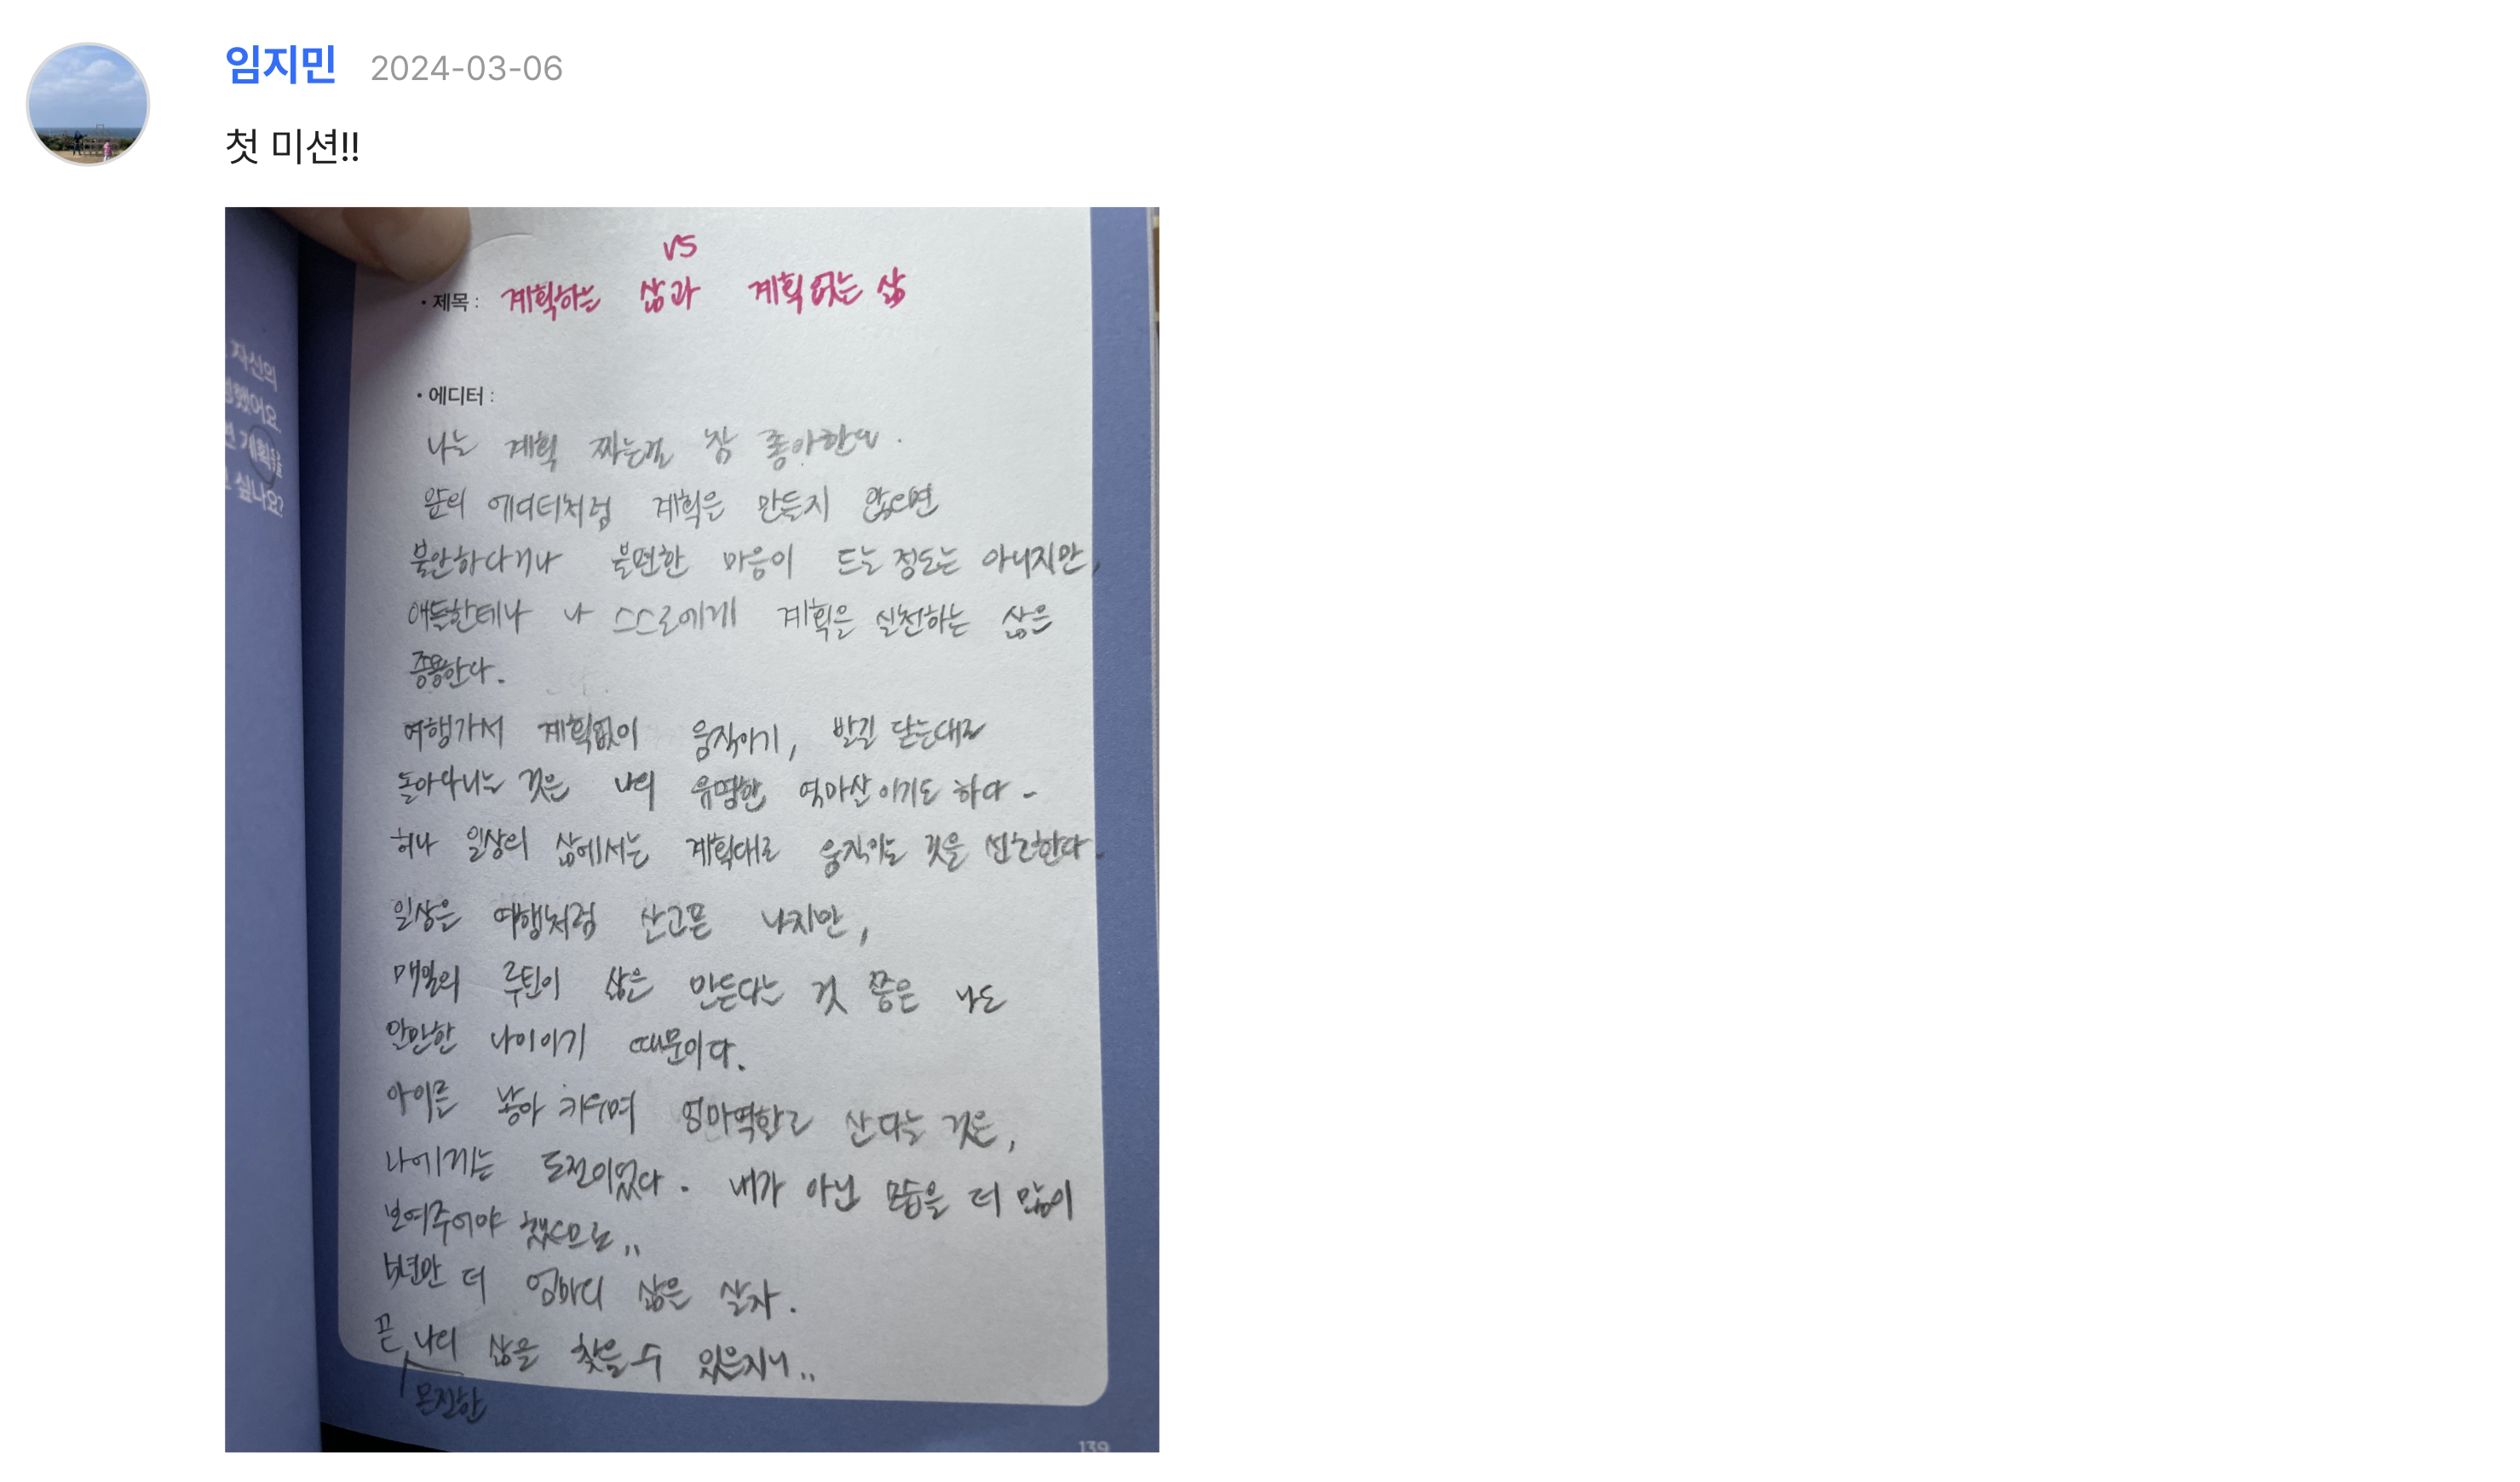 임지민 2024-03-06
첫 미션!!
vs
• 제목 : 계획하는 삶과 계획없는 삶
자신의
했어요.
계획을
싶나요?
• 에디터 :
나는 계획 짜는걸 참 좋아한다.
앞의 에디터처럼 계획을 만들지 않으면
불안하다거나 불편한 마음이 드는 정도는 아니지만,
애들한테나 나 스스로에게 계획을 실천하는 삶을
종용한다.
여행가서 계획없이 움직이기, 발길 닫는대로
돌아다니는 것은 나의 유명한 역마살이기도 하다.
허나 일상의 삶에서는 계획대로 움직이는 것을 선호한다.
일상은 여행처럼 살고픈 나지만,
매일의 루틴이 삶을 만든다는 것 쯤은 나도
알만한 나이이기 때문이다.
아이를 낳아 키우며 엄마역할로 산다는 것은,
나에게는 도전이었다. 내가 아닌 모습을 더 많이
보여주어야 했으므로..
년만 더 엄마의 삶을 살자.
곧 나의 삶을 찾을 수 있을지니..
온전한
139